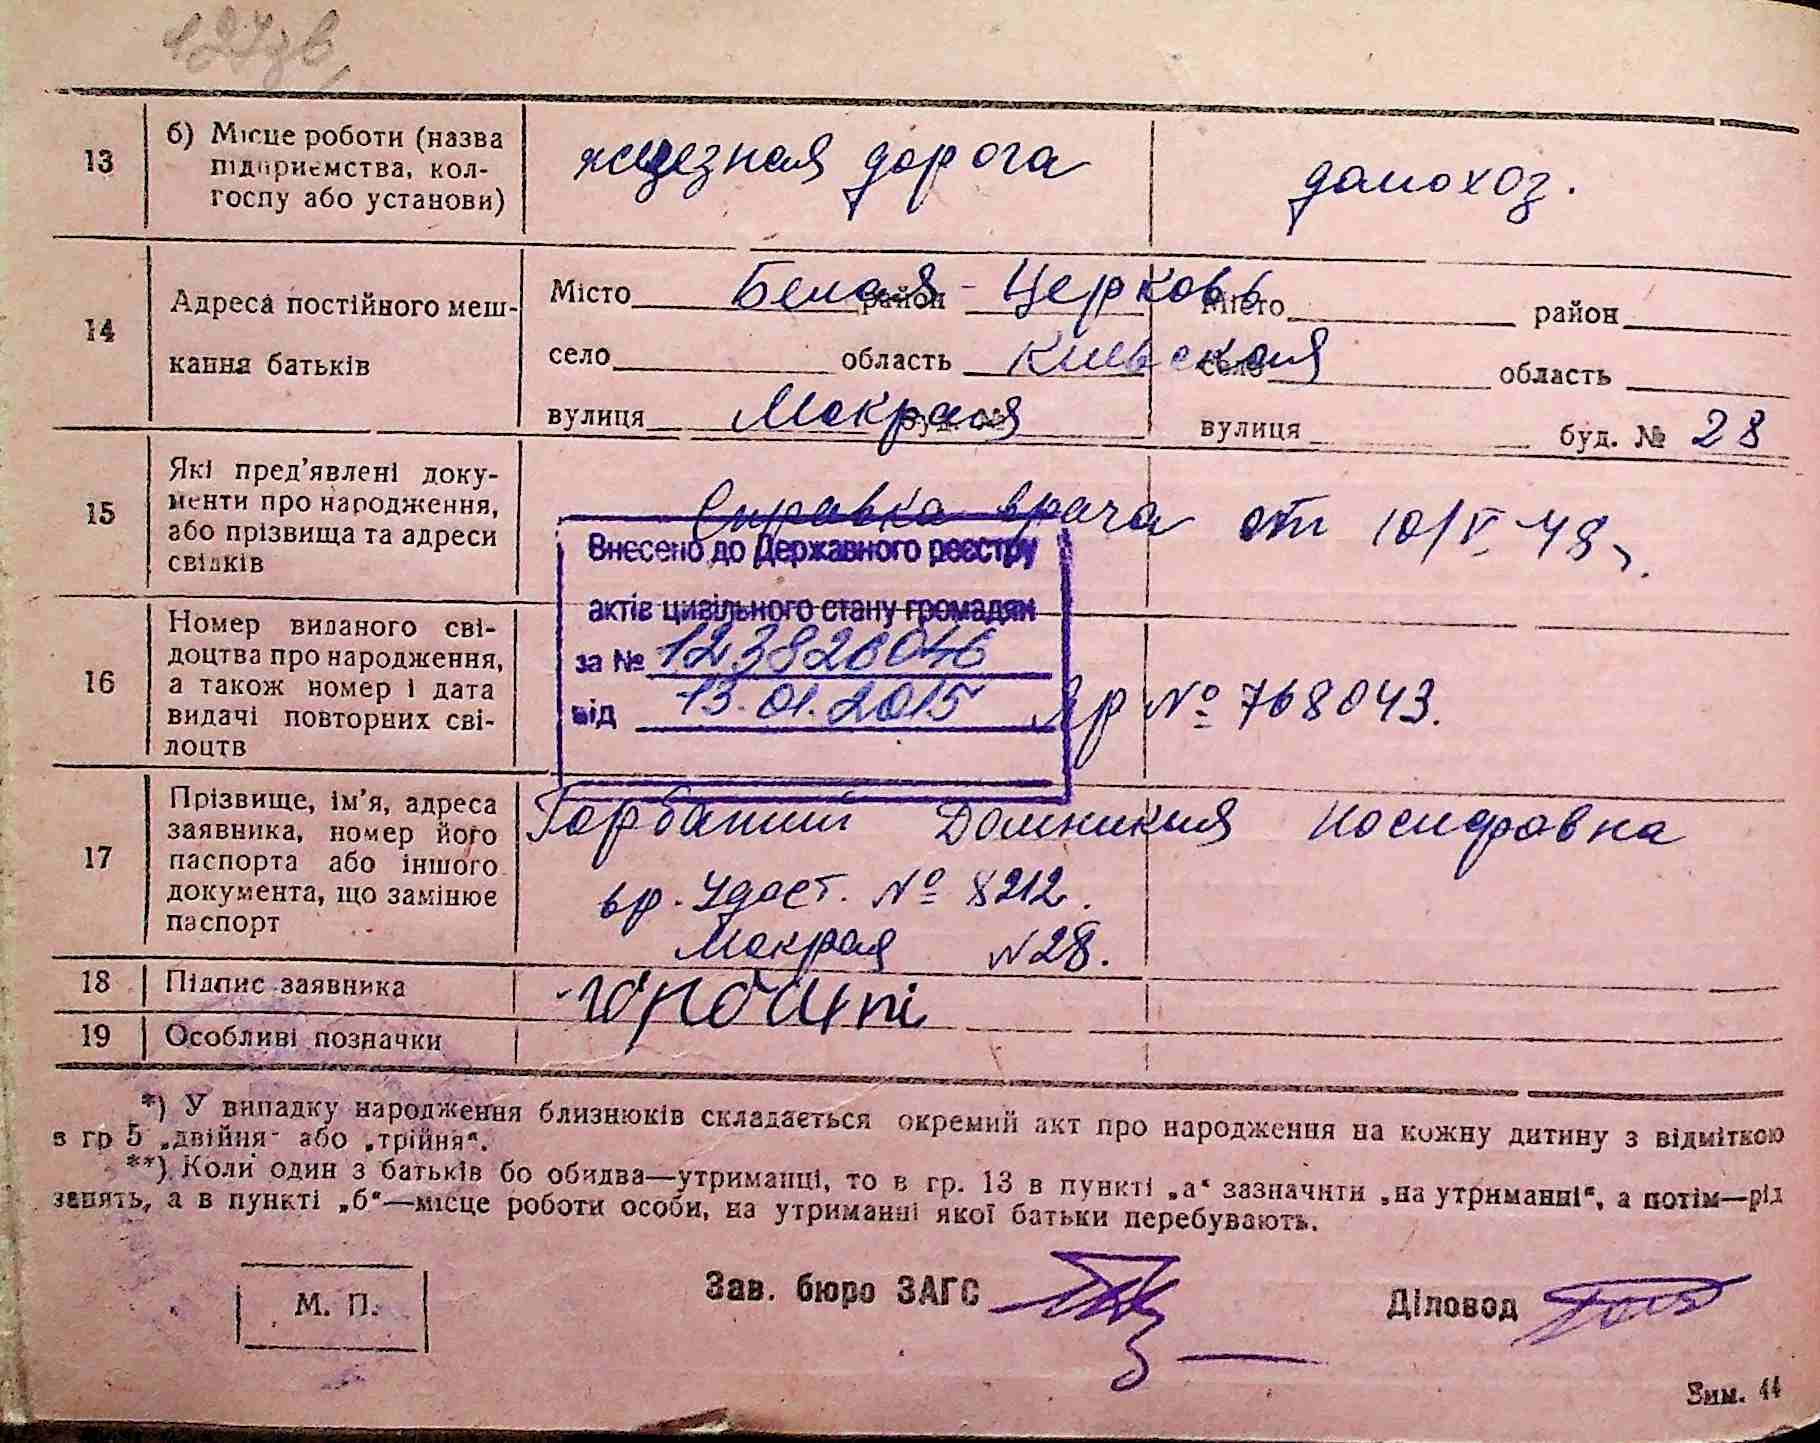 127зв,
13 б) Місце роботи (назва підприємства, кол-
госпу або установи)
железная дорога домохоз.
14 Адреса постійного меш-
кання батьків
Місто Белая - Церковь район Місто район
село область Киевская село область
вулиця Мокрая буд. № вулиця буд. № 28
15 Які пред'явлені доку-
менти про народження,
або прізвища та адреси
свідків
Справка врача от 10/V 48
Внесено до Державного реєстру
актів цивільного стану громадян
за № 123826046
від 13.01.2015
16 Номер виданого сві-
доцтва про народження,
а також номер і дата
видачі повторних сві-
доцтв
№ 768043.
17 Прізвище, ім'я, адреса
заявника, номер його
паспорта або іншого
документа, що замінює
паспорт
Домникия Иосифовна
вр. Удост. № 8212.
Мокрая N28.
18 Підпис заявника
19 Особливі позначки
*) У випадку народження близнюків складається окремий акт про народження на кожну дитину з відміткою
в гр 5 „двійня" або „трійня".
**) Коли один з батьків бо обидва—утриманці, то в гр. 13 в пункті „а" зазначити „на утриманні", а потім—рід
занять, а в пункті „б"—місце роботи особи, на утриманні якої батьки перебувають.
М. П.
Зав. бюро ЗАГС
Діловод
Зим. 44